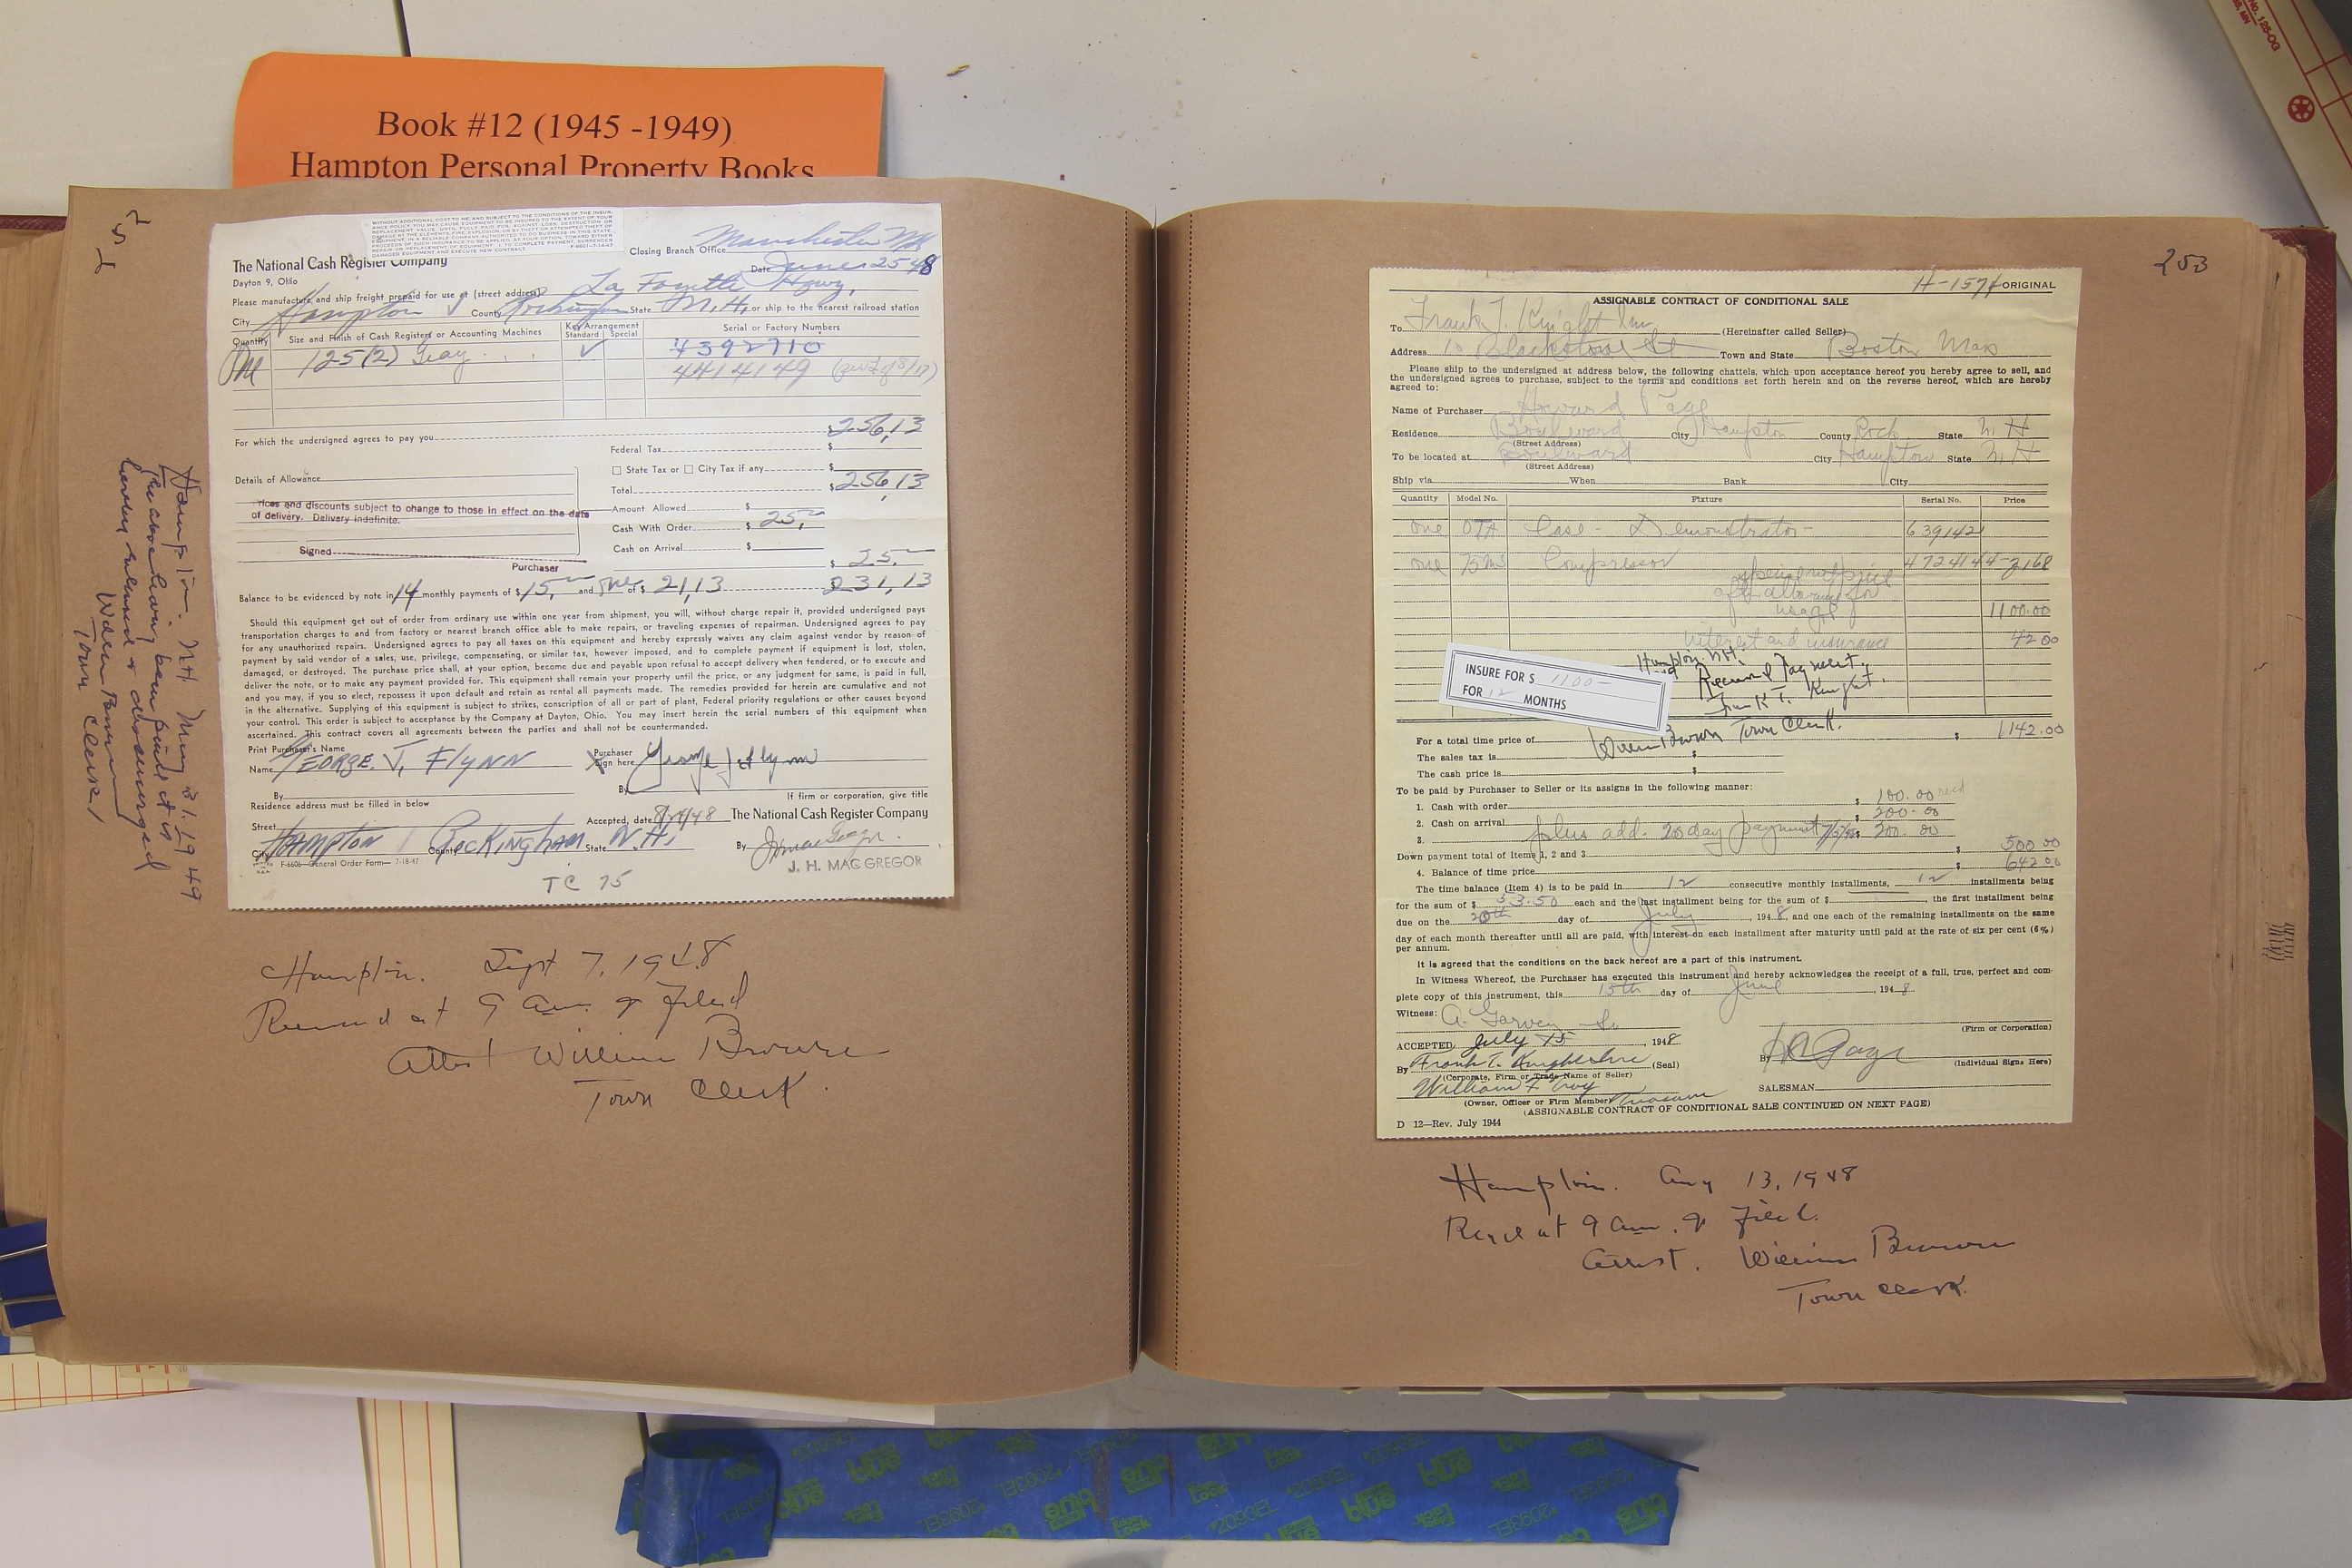 Book #12 (1945 -1949)
Hampton Personal Property Books
252
WITHOUT ADDITIONAL COST TO ME, AND SUBJECT TO THE CONDITIONS OF THE INSUR-
ANCE POLICY, YOU MAY CAUSE EQUIPMENT TO BE INSURED TO THE EXTENT OF YOUR
REPLACEMENT VALUE, UNTIL FULLY PAID FOR, AGAINST LOSS, DESTRUCTION OR
DAMAGE BY THE ELEMENTS, FIRE, EXPLOSION, OR BY THEFT OR ATTEMPTED THEFT OF
EQUIPMENT, IN A RELIABLE COMPANY AUTHORIZED TO DO BUSINESS IN THIS STATE,
PROCEEDS OF SUCH INSURANCE TO BE APPLIED, AT YOUR OPTION, TOWARD EITHER
REPAIR OR REPLACEMENT OF EQUIPMENT; I, TO COMPLETE PAYMENT, SURRENDER
DAMAGED EQUIPMENT AND EXECUTE NEW CONTRACT. F-6601-7-14-47
Closing Branch Office Manchester NH
The National Cash Register Company
Date June 25 48
Dayton 9, Ohio
Please manufacture and ship freight prepaid for use at (street address) La Fayette Hgwy,
City Hampton County Rockingham State N.H. or ship to the nearest railroad station
Quantity Size and Finish of Cash Registers or Accounting Machines Key Arrangement Standard Special Serial or Factory Numbers
One 125(2) Gray ✓ 4392710
4414149
For which the undersigned agrees to pay you $256.13
Federal Tax $
☐ State Tax or ☐ City Tax if any $
Details of Allowance
Total $256.13
Prices and discounts subject to change to those in effect on the date
of delivery. Delivery indefinite.
Amount Allowed $
Cash With Order $25.
Cash on Arrival $
Signed
Purchaser
$25.
Balance to be evidenced by note in 14 monthly payments of $15. and one of $21.13 231.13
Should this equipment get out of order from ordinary use within one year from shipment, you will, without charge repair it, provided undersigned pays
transportation charges to and from factory or nearest branch office able to make repairs, or traveling expenses of repairman. Undersigned agrees to pay
for any unauthorized repairs. Undersigned agrees to pay all taxes on this equipment and hereby expressly waives any claim against vendor by reason of
payment by said vendor of a sales, use, privilege, compensating, or similar tax, however imposed, and to complete payment if equipment is lost, stolen,
damaged, or destroyed. The purchase price shall, at your option, become due and payable upon refusal to accept delivery when tendered, or to execute and
deliver the note, or to make any payment provided for. This equipment shall remain your property until the price, or any judgment for same, is paid in full,
and you may, if you so elect, repossess it upon default and retain as rental all payments made. The remedies provided for herein are cumulative and not
in the alternative. Supplying of this equipment is subject to strikes, conscription of all or part of plant, Federal priority regulations or other causes beyond
your control. This order is subject to acceptance by the Company at Dayton, Ohio. You may insert herein the serial numbers of this equipment when
ascertained. This contract covers all agreements between the parties and shall not be countermanded.
Print Purchaser's Name
Name GEORGE. J. FLYNN
Purchaser sign here X George J Flynn
By
By
Residence address must be filled in below
If firm or corporation, give title
Street
Accepted, date 8/24/48 The National Cash Register Company
City HAMPTON County ROCKINGHAM State N.H.
By
J. H. MAC GREGOR
F-6606—General Order Form— 7-18-47
TC 75
Hampton. N.H. May 31. 1949
The above having been paid it is
hereby released & discharged
William Brown
Town Clerk
Hampton. Sept 7, 1948
Received at 9 am. & Filed
Attest William Brown
Town Clerk.
253
H-1574 ORIGINAL
ASSIGNABLE CONTRACT OF CONDITIONAL SALE
To Frank T. Knight Inc (Hereinafter called Seller)
Address 10 Blackstone St Town and State Boston Mass
Please ship to the undersigned at address below, the following chattels, which upon acceptance hereof you hereby agree to sell, and
the undersigned agrees to purchase, subject to the terms and conditions set forth herein and on the reverse hereof, which are hereby
agreed to:
Name of Purchaser Howard Page
Residence Boulevard City Hampton County Rock State N. H
(Street Address)
To be located at Boulevard City Hampton State N. H
(Street Address)
Ship via When Bank City
Quantity Model No. Fixture Serial No. Price
one OTA Case - Demonstrator - 639142
one 75MS Compressor 4724144-2168
special net price
after allowance for
usage 1100.00
interest and insurance 42.00
INSURE FOR $ 1100-
FOR 12 MONTHS
Hampton. N.H.
Received Payment.
Frank T. Knight.
William Brown Town Clerk.
For a total time price of $ 1142.00
The sales tax is $
The cash price is $
To be paid by Purchaser to Seller or its assigns in the following manner:
1. Cash with order $ 100.00 recd
2. Cash on arrival $ 200.00
3. plus add. 20 day payment $ 200.00
Down payment total of items 1, 2 and 3 $ 500.00
4. Balance of time price $ 642.00
The time balance (Item 4) is to be paid in 12 consecutive monthly installments, 12 installments being
for the sum of $ 53.50 each and the last installment being for the sum of $ , the first installment being
due on the 20th day of July, 1948, and one each of the remaining installments on the same
day of each month thereafter until all are paid, with interest on each installment after maturity until paid at the rate of six per cent (6%)
per annum.
It is agreed that the conditions on the back hereof are a part of this instrument.
In Witness Whereof, the Purchaser has executed this instrument and hereby acknowledges the receipt of a full, true, perfect and com-
plete copy of this instrument, this 15th day of June, 1948
Witness: A. Garvey Sr
(Firm or Corporation)
ACCEPTED July 15, 1948
By Frank T. Knight Inc (Seal)
By H Page (Individual Signs Here)
(Corporate, Firm or Trade Name of Seller)
William F. Troy
SALESMAN
(Owner, Officer or Firm Member) Treasurer
(ASSIGNABLE CONTRACT OF CONDITIONAL SALE CONTINUED ON NEXT PAGE)
D 12—Rev. July 1944
Hampton. Aug 13, 1948
Recd at 9 am. & Filed.
Attest. William Brown
Town Clerk.